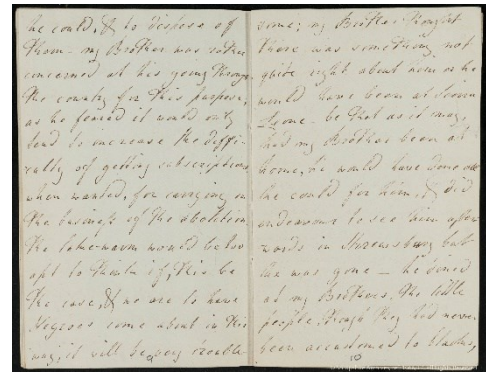 he could, & to dispose of
them – my Brother was rather
concerned at his going through
the country for this purpose,
as he feared it would only
tend to increase the diffi-
culty of getting subscriptions
when wanted, for carrying on
the business of the abolition
the luke-warm would be too
apt to think if, this be
the case, & we are to have
Negroes come about in this
way, it will be a very trouble-
some; my Brother thought
there was something not
quite right about him or he
would have been at Sierra
Leone – be that as it may,
had my Brother been at
home, he would have done all
he could for him, & did
endeavour to see him after-
wards in Shrewsbury but
he was gone – he dined
at my Brothers. The little
people, though they had never
been accustomed to blacks,
10